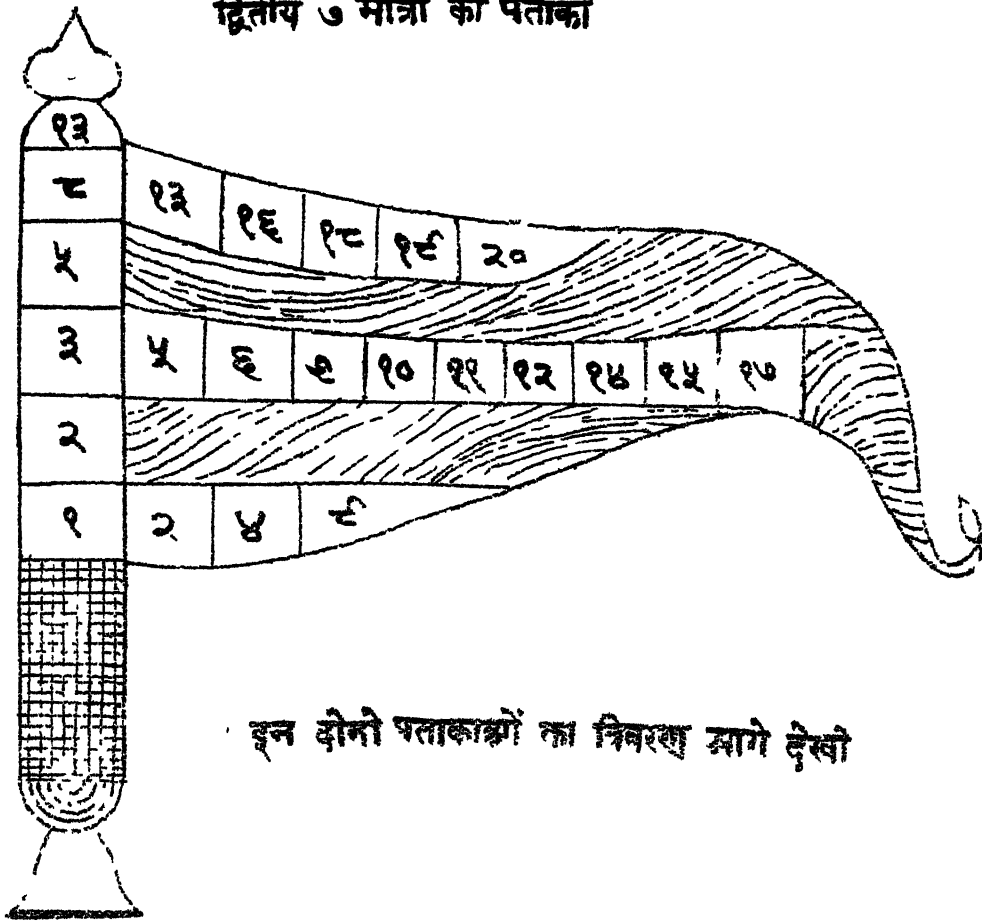 द्वितीय ७ मात्रा की पताका
१३
८ १३ १६ १८ १९ २०
५
३ ५ ६ ७ १० ११ १२ १४ १५ १७
२
१ २ ४ ९
इन दोनो पताकाओं का विवरण आगे देखो